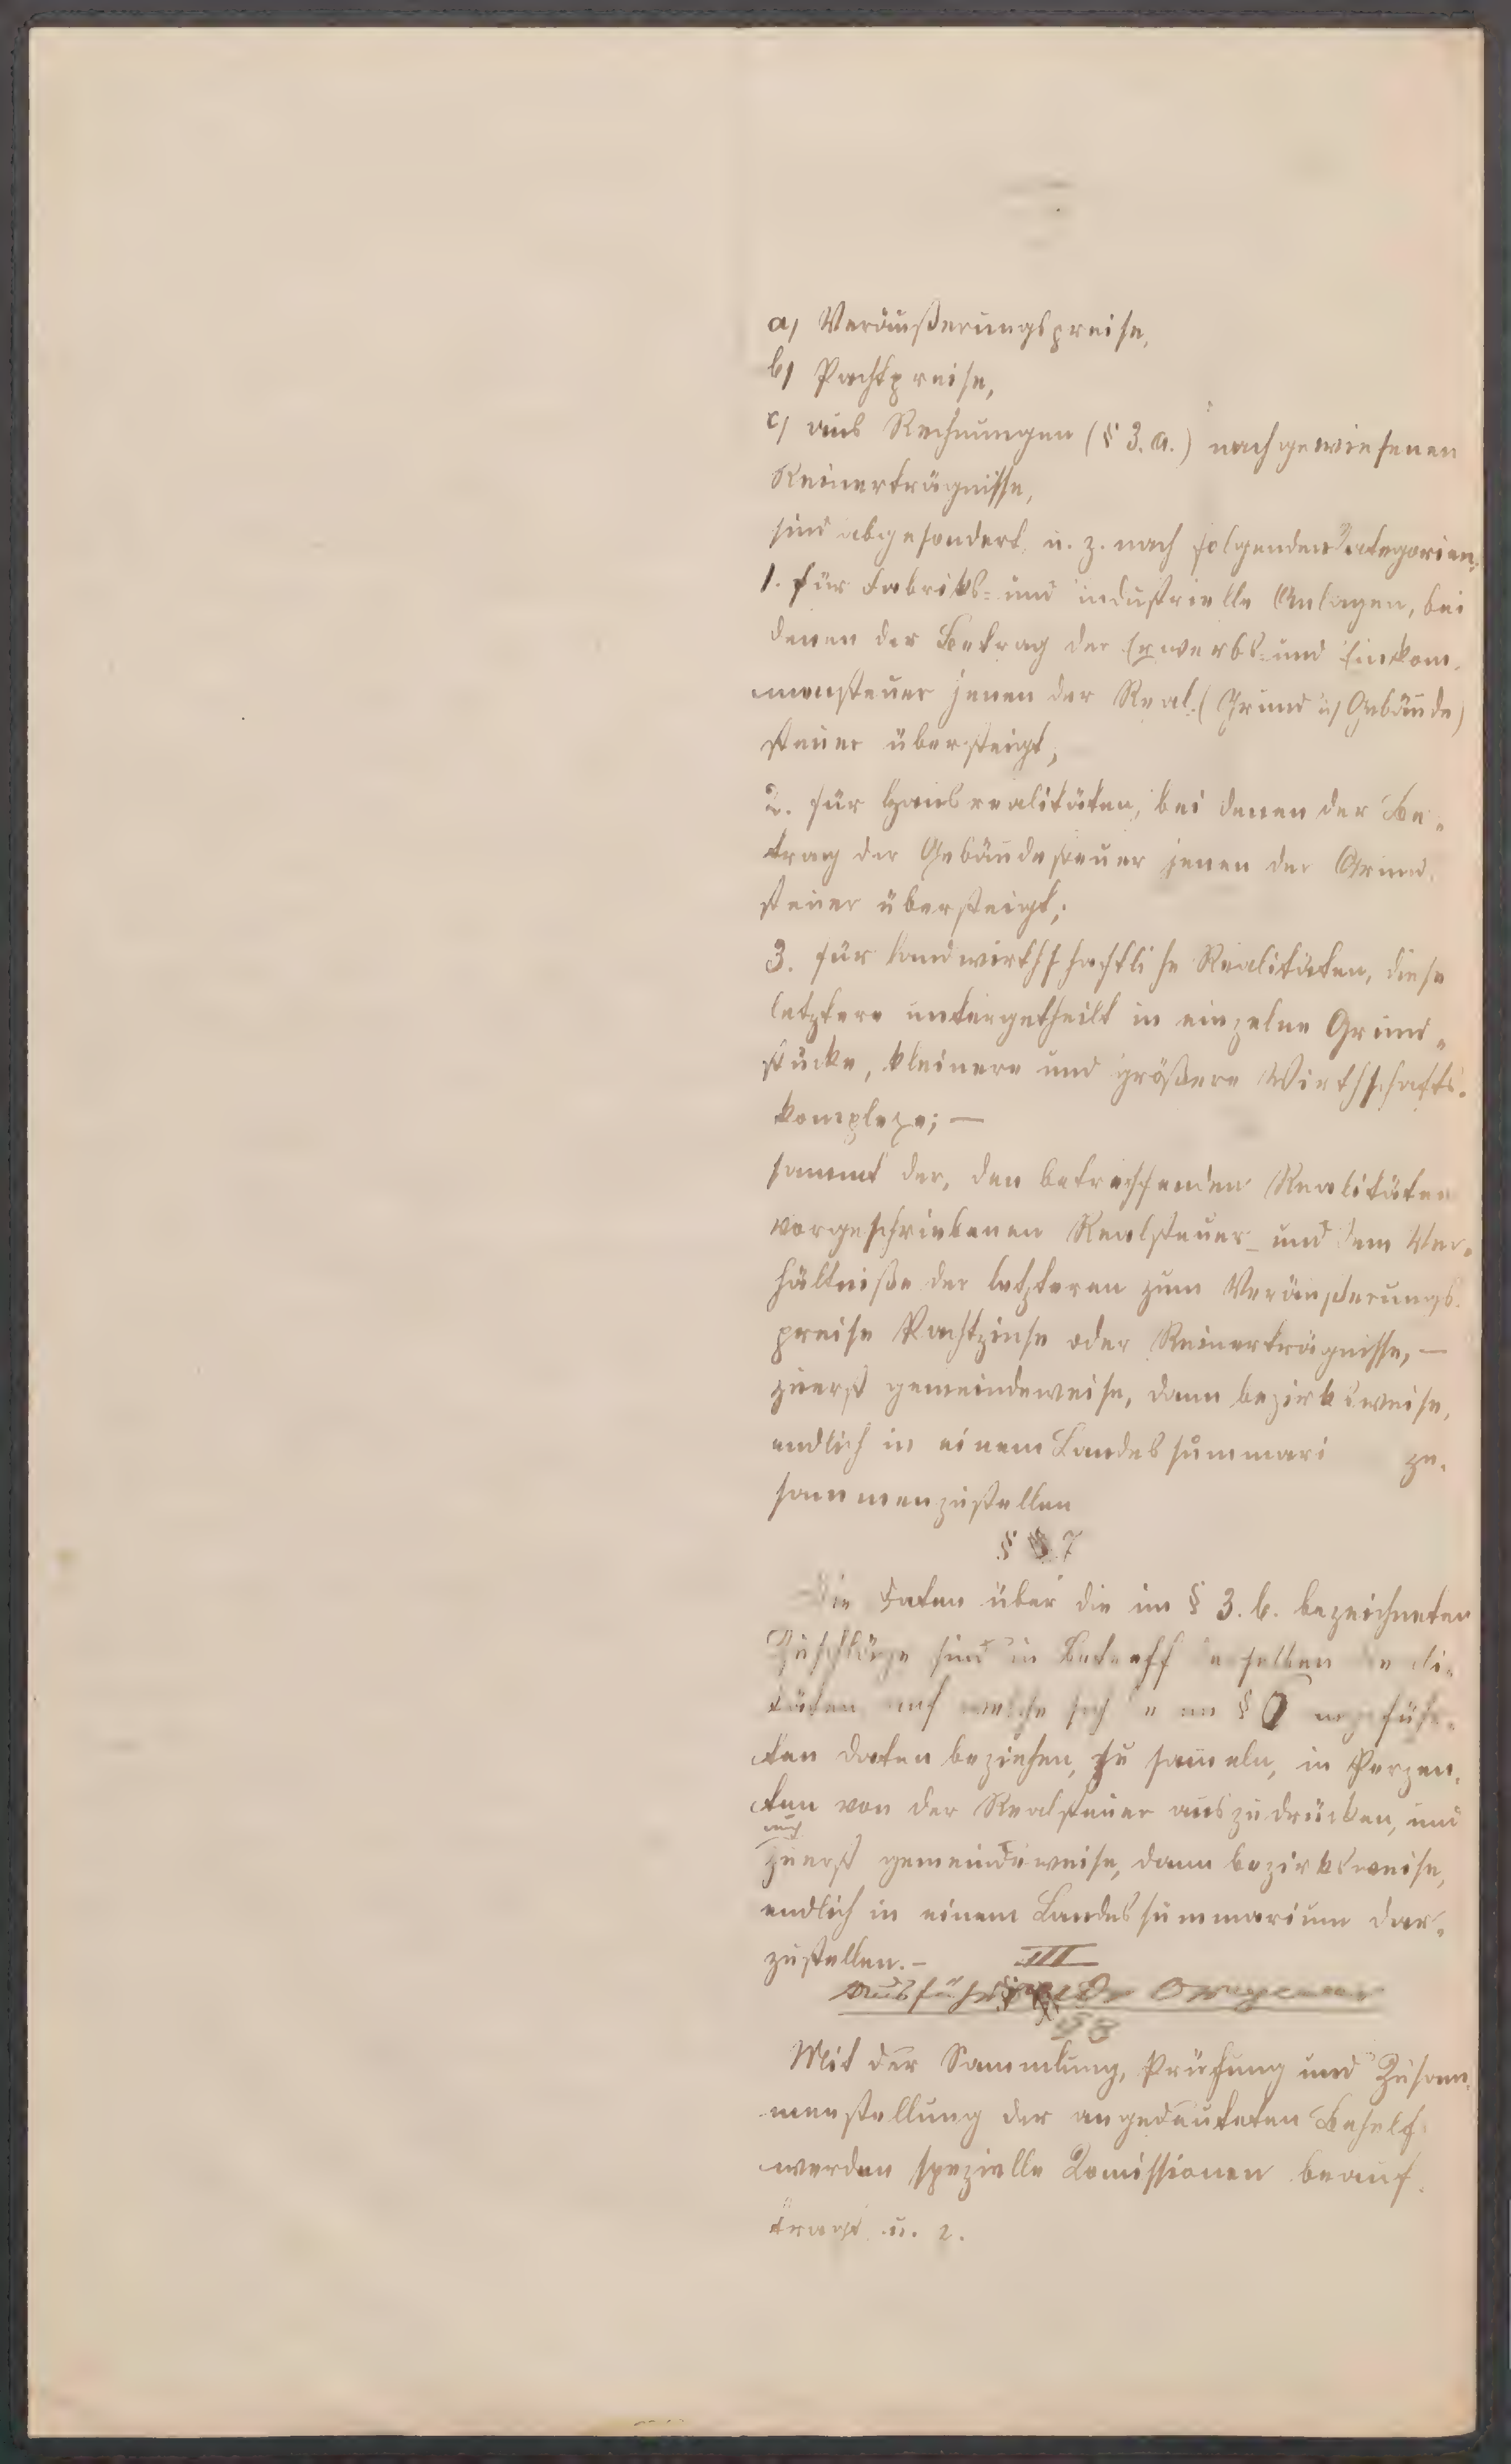 a) Veräußerungspreise,
b) Pachtpreise,
c) aus Rechnungen (§ 3. a.) nachgewiesenen
Reinerträgnisse,
sind abgesondert u. z. nach folgenden Categorien:
1. für Fabriks- und industrielle Anlagen, bei
denen der Betrag der Erwerbs- und Einkom-
mensteuer jenen der Real-(Grund u/ Gebäude)
steuer übersteigt,
2. für Hausrealitäten, bei denen der Be-
trag der Gebäudesteuer jenen der Grund-
steuer übersteigt;
3. für landwirthschaftliche Realitäten, diese
letztere untergetheilt in einzelne Grund-
stücke, kleinere und größere Wirthschafts-
komplexe; —
sammt der, den betreffenden Realitäten
vorgeschriebenen Realsteuer und dem Ver-
hältniße der letzteren zum Veräußerungs-
preise Pachtzinse oder Reinerträgnisse, —
zuerst gemeindeweise, dann bezirksweise,
endlich in einem Landessummari zu-
sammenzustellen
§ 7
Die Daten über die im § 3. b. bezeichneten
Zuschläge sind in Betreff
auf welche sich § 6
ten Daten beziehen, zu sam̅eln, in Perzen-
ten von der Realsteuer auszudrücken, und
auch
zuerst gemeindeweise, dann bezirksweise,
endlich in einem Landessummarium dar-
zustellen.-
III
Ausführung der Organe
§ 8
Mit der Sammlung, Prüfung und Zusam-
menstellung der angedeuteten Behelf
werden spezielle Comissionen beauf-
tragt u. z.